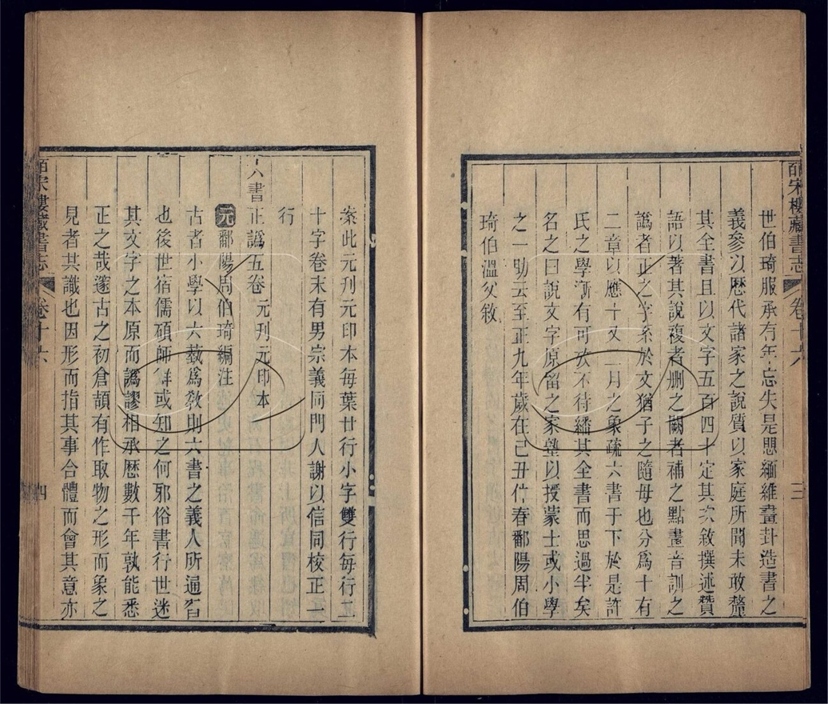 皕宋樓藏書志 卷十六 三
世伯琦服承有年忘失是思緬維畫卦造書之
義參以歷代諸家之說質以家庭所聞未敢釐
其全書且以文字五百四十定其次敘撰述贊
語以著其說複者刪之闕者補之點畫音訓之
譌者正之字系於文猶子之隨母也分爲十有
二章以應十又二月之象疏六書于下於是許
氏之學漸有可攷不待繙其全書而思過半矣
名之曰說文字原留之家塾以授蒙士或小學
之一助云至正九年歲在己丑仲春鄱陽周伯
琦伯溫父敘
案此元刊元印本每葉廿行小字雙行每行二
十字卷末有男宗義同門人謝以信同校正一
行
六書正譌五卷 元刊元印本
元鄱陽周伯琦編注
古者小學以六藝爲教則六書之義人所通習
也後世宿儒碩師鮮或知之何邪俗書行世迷
其文字之本原而譌謬相承歷數千年孰能悉
正之哉邃古之初倉頡有作取物之形而象之
見者共識也因形而指其事合體而會其意亦
皕宋樓藏書志 卷十六 四